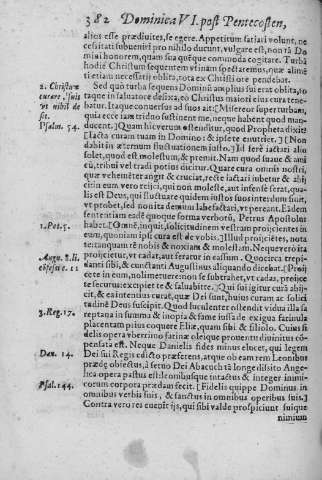 382 Dominica VI. post Pentecosten,
alios esse prædivites, se egere. Appetitum satiari volunt, ne
cessitati subveniri pro nihilo ducunt, vulgare est, non tã Do
mini honorem, quam sua quęque commoda cogitare. Turba
hodie Christum sequentem visnam spectaremus, quæ alime
ti etiam necessarij oblita, tota ex Christi ore pensebat.
2. Christū Sed quò turba sequens Dominũ amplius sui erat oblita, tò
curare, suis taque in salvatore defixa, eò Christus maiori eius cura tene-
vt nihil de batur. Itaque conversus ad suos ait: [Misereor super turbam,
sit. quia ecce iam triduo sustinent me, neque habent quod man-
Psalm. 54. ducent.] Quam hic verum ostenditur, quod Propheta dixit?
[Iacta curam tuam in Domino: & ipse te enutriet.] [Non
dabit in æternum fluctuationem iusto.] Id ferè iactati alio
solet, quod est molestum, & premit. Nam quod suave & ami
eũ, tribui vel tradi potius dicitur. Quare cura omnis nostri,
quæ vehemẽter angit & cruciat, rectè iactari iubetur & abi
ci: non enim vult regi vel eijci, qui non moleste, aut insense ferat, qua-
lis est Deus, qui fluctuare quidem iustos suos interdum sinit,
vt probet, sed non ita demum labefactati, vt pereant. Eadem
sententiam eadẽ quoque forma verborũ, Petrus Apostolus
1. Pet. 5. habet. [Omnẽ, inquit, solicitudinem vestram proijcientes in
eum, quoniam ipsi cura est de vobis.] Illud proijciẽtes, nota
Aug. 8. li. rit in quem se reclinat, aut feratur in eassum. Quocirca trepi-
cōfess. c. 11 danti sibi, & cunctanti Augustinus aliquando dicebat. [Proij
cite in eum, noli metuere: non se subtrahet, vt cadas, proijce
te securus: excipiet te & salvabit te.] Qui sui igitur curã abij-
cit, & ea intentius curat, quæ Dei sunt, huius curam ac solici
tudinẽ Deus suscipit. Quod luculenter ostendit vidua illa sa
3. Reg. 17. reptana in summa & inopia & fame iussa de exigua farinula
placentam prius coquere Eliæ, quàm sibi & filiolo. Cuius fi
delis opera vberrimo farinæ oleique proventu divinitùs cõ-
pensata est. Neque Danielis fides minus elucet, qui legem
Dan. 14. Dei sui Regis edicto præferens, atque ob eam rem Leonibus
prædę obiectus, à servo Dei Abacuch tã longè dissito Ange-
lica opera pastus est: leonibusque intactus & integer inimi
Psal. 144. corum corpora prædam fecit. [Fidelis quippe Dominus in
omnibus verbis suis, & sanctus in omnibus operibus suis.]
Contra vero res evenit ijs, qui sibi valde prospiciunt suique
nimium